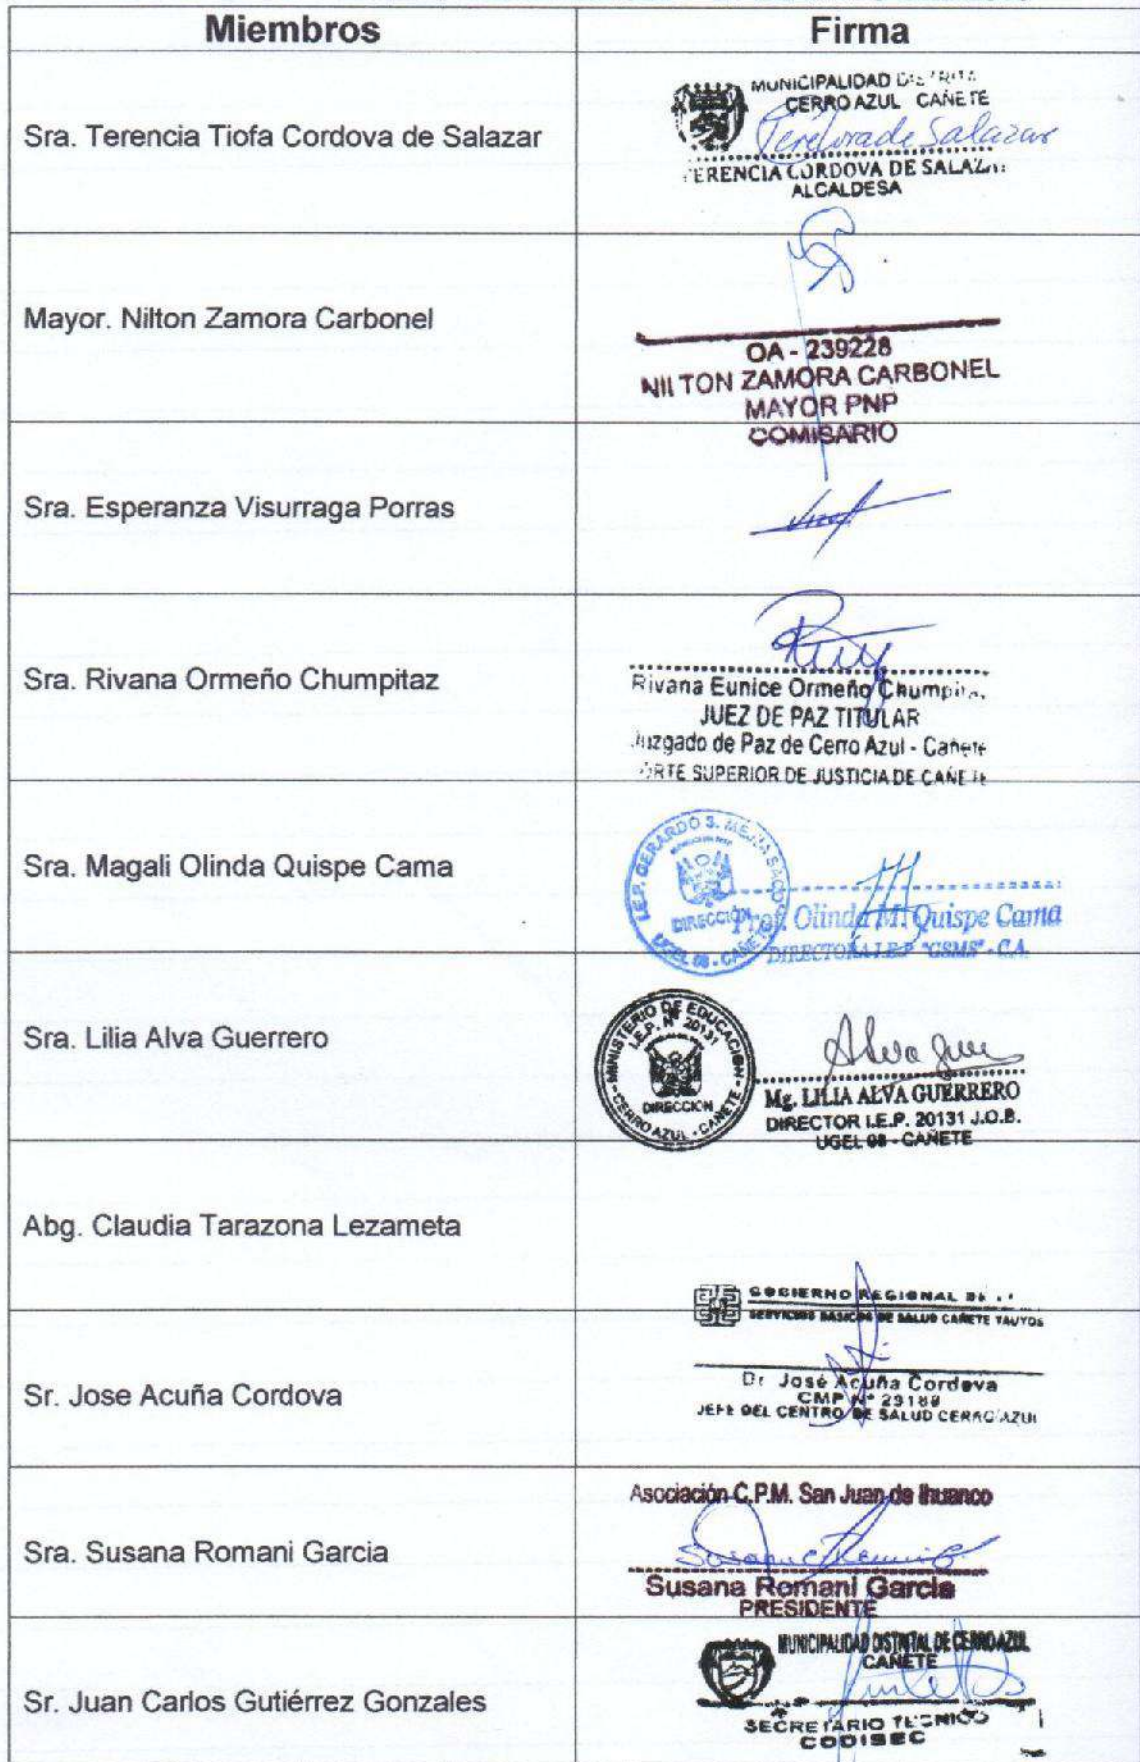 Miembros
Firma
Sra. Terencia Tiofa Cordova de Salazar
MUNICIPALIDAD
CERRO AZUL CAÑETE
de Salazar
TERENCIA CORDOVA DE SALAZ
ALCALDESA
Mayor. Nilton Zamora Carbonel
OA - 239228
NILTON ZAMORA CARBONEL
MAYOR PNP
COMISARIO
Sra. Esperanza Visurraga Porras
Sra. Rivana Ormeño Chumpitaz
Rivana Eunice Ormeño Chumpi
JUEZ DE PAZ TITULAR
Juzgado de Paz de Cerro Azul - Cañete
ORTE SUPERIOR DE JUSTICIA DE CAÑETE
Sra. Magali Olinda Quispe Cama
I.E.P. GERARDO S. MEJIA SACO
DIRECCIÓN
UGEL 08 - CAÑETE
Prof. Olinda M. Quispe Cama
DIRECTORA I.E.P "GSMS" - C.A.
Sra. Lilia Alva Guerrero
MINISTERIO DE EDUCACION
I.E.P. N° 20131
DIRECCION
CERRO AZUL - CAÑETE
Alva Gue
Mg. LILIA ALVA GUERRERO
DIRECTOR I.E.P. 20131 J.O.B.
UGEL 08 - CAÑETE
Abg. Claudia Tarazona Lezameta
GOBIERNO REGIONAL DE
SERVICIOS BASICOS DE SALUD CAÑETE YAUYOS
Sr. Jose Acuña Cordova
Dr José Acuña Cordova
CMP N° 23189
JEFE DEL CENTRO DE SALUD CERRO AZUL
Asociación C.P.M. San Juan de Ihuanco
Sra. Susana Romani Garcia
Susana Romani G.
Susana Romani Garcia
PRESIDENTE
MUNICIPALIDAD DISTRITAL DE CERRO AZUL
CAÑETE
Sr. Juan Carlos Gutiérrez Gonzales
SECRETARIO TECNICO
CODISEC